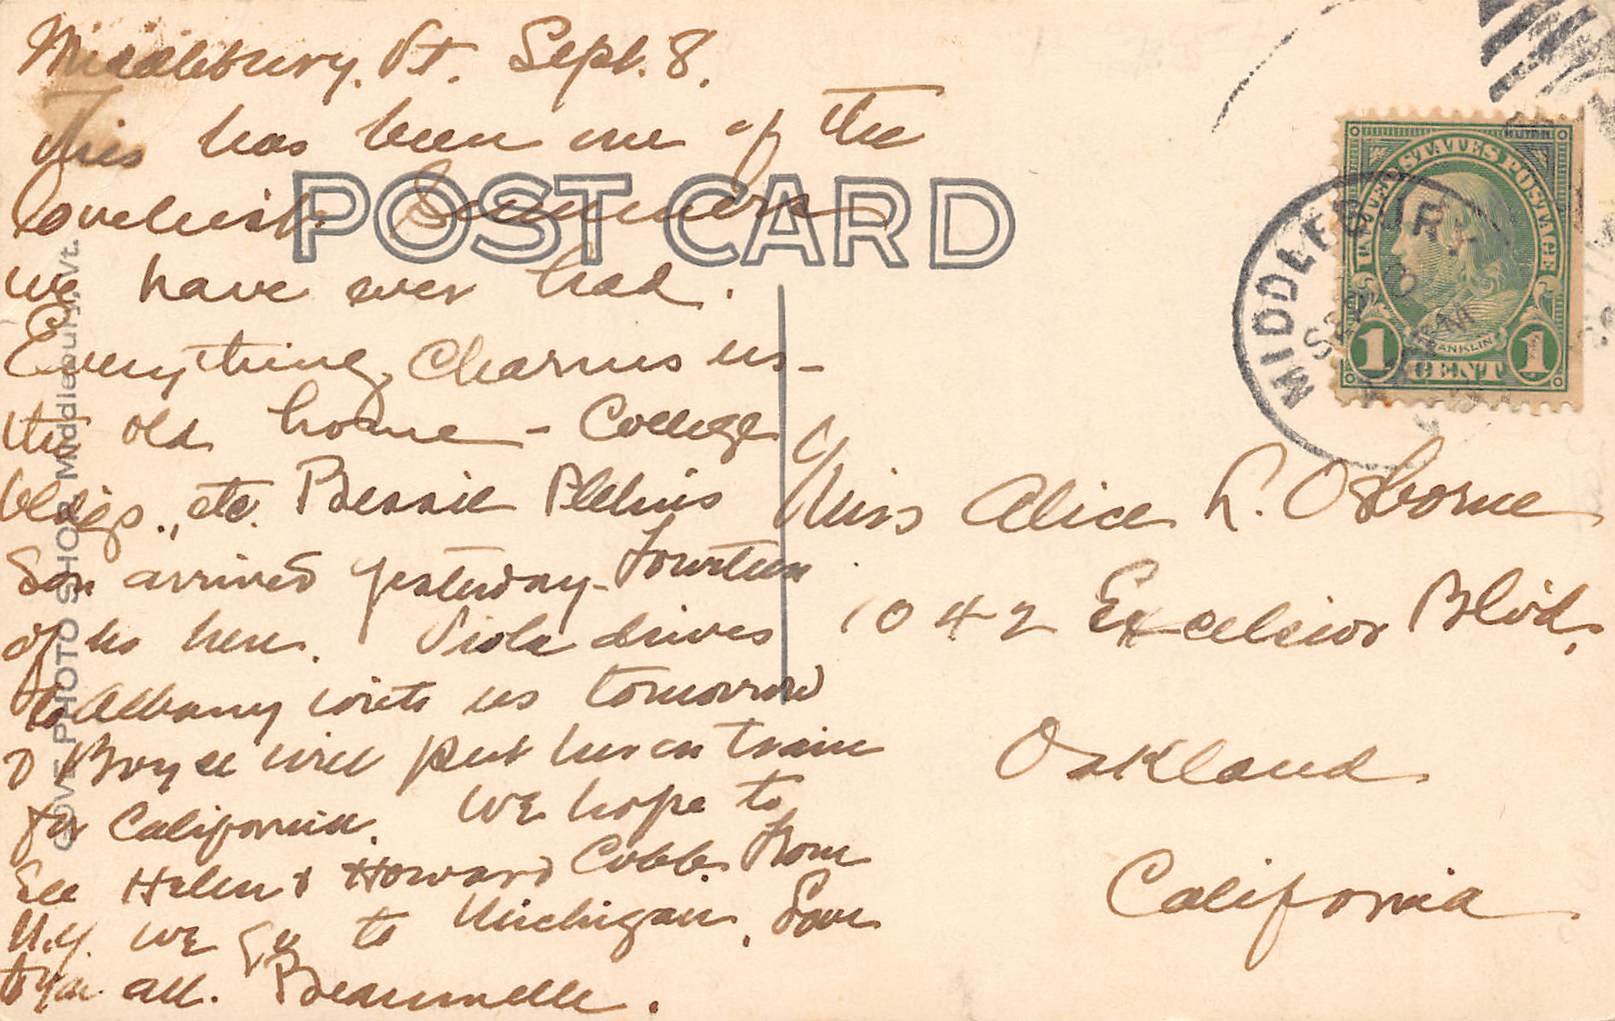 Middlebury, Vt. Sept. 8.
This has been one of the
loveliest Summers
we have ever had.
Everything charms us -
the old home - College
bldgs., etc. Bessie
Son arrived yesterday - Fourteen
of us here. Viola drives
to Albany with us tomorrow
& Boyse will put her on train
for California. We hope to
see Helen & Howard Cobb. From
N.Y. we go to Michigan. Love
to you all. Beaumelle.
POST CARD
GOVE PHOTO SHOP Middlebury, Vt.
UNITED STATES POSTAGE
FRANKLIN
1 CENT 1
MIDDLEBURY
SEP 8
Miss Alice L. Osborne
1042 Excelsior Blvd.
Oakland
California